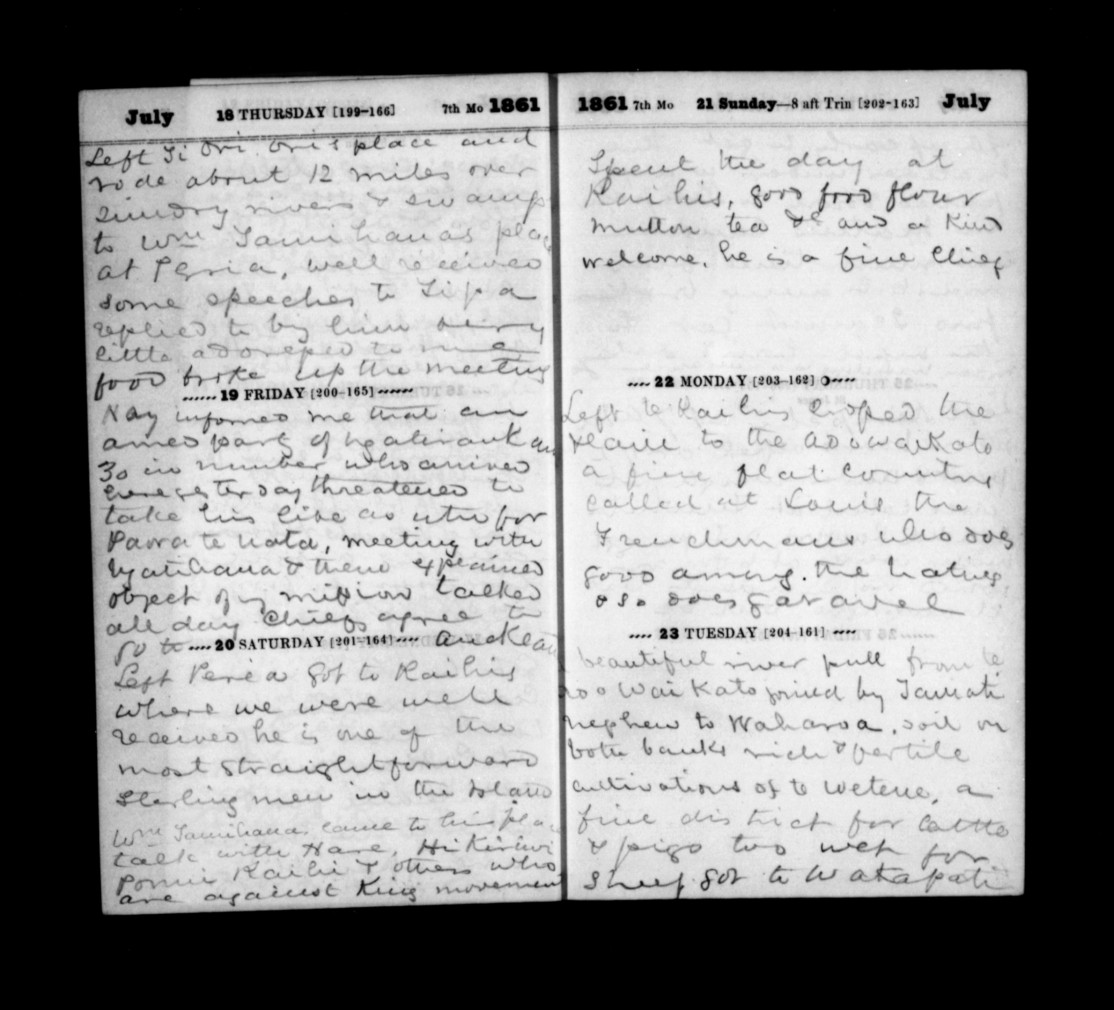 July 18 THURSDAY [199-166] 7th Mo 1861
Left Ti Ori Ori's place and
rode about 12 miles over
sundry rivers & swamps
to Wm Tamihanas place
at Peria, well received
some speeches to Tipa
replied to by him very
little adoreped to
food broke up the meeting
19 FRIDAY [200-165]
Nay informed me that an
armed party of
30 in number who arrived
here yesterday threatened to
take his life as utu for
Paora te uata, meeting with
Ngatihaua & there explained
object of my mission talked
all day Chiefs agree to
go to Auckland
20 SATURDAY [201-164]
Left Peria got to Raihis
where we were well
received he is one of the
most straightforward
sterling men in the Island
Wm Tamihana came to his place
talk with Hare, Hikiriwi
Pomui Raihi & others who
are against King movement
1861 7th Mo 21 Sunday—8 aft Trin [202-163] July
Spent the day at
Raihis, good food flour
mutton tea &c and a kind
welcome. he is a fine Chief
22 MONDAY [203-162]
Left te Raihis crossed the
plain to the Waikato
a fine flat country
called at Louis the
Frenchmans who does
good among the natives
so does Garavel
23 TUESDAY [204-161]
beautiful river pull from te
roo Waikato joined by Tamati
nephew to Waharoa, soil on
both banks rich & fertile
cultivations of te wetene, a
fine district for Cattle
& pigs too wet for
sheep got to Watapati